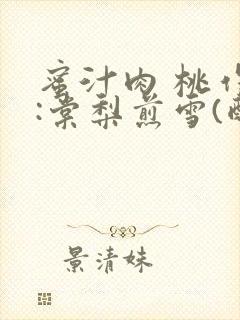 蜜汁肉桃
:棠梨煎雪(
景清妹